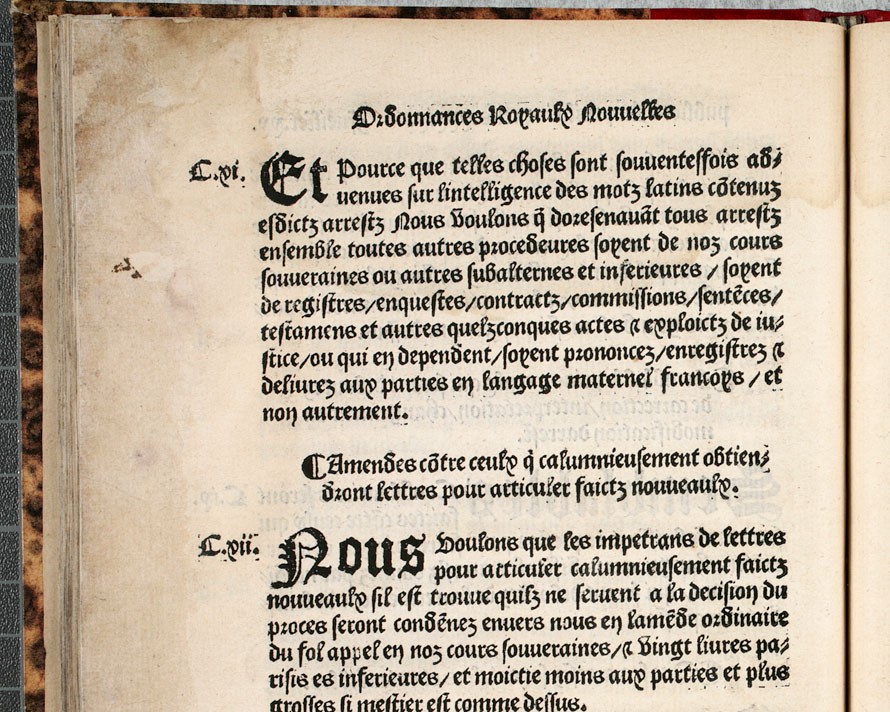 Ordonnances Royaulx Nouuelles
C.xi. Et Pource que telles choses sont souuenteffois ad⸗
uenues sur lintelligence des motz latins cõtenuz
esdictz arrestz Nous voulons q̃ doresenauãt tous arrestz
ensemble toutes autres procedeures soyent de noz cours
souueraines ou autres subalternes et inferieures / soyent
de registres/enquestes/contractz/commissions/sentẽces/
testamens et autres quelzconques actes ⁊ exploictz de iu⸗
stice/ou qui en dependent/soyent prononcez/enregistrez ⁊
deliurez aux parties en langage maternel francoys / et
non autrement.
¶Amendes cõtre ceulx q̃ calumnieusement obtien⸗
dront lettres pour articuler faictz nouueaulx.
C.xii. Nous Voulons que les impetrans de lettres
pour articuler calumnieusement faictz
nouueaulx sil est trouue quilz ne seruent a la decision du
proces seront condẽnez enuers nous en lamẽde ordinaire
du fol appel en noz cours souueraines/⁊ vingt liures pa⸗
risis es inferieures/ et moictie moins aux parties et plus
grosses si mestier est comme dessus.